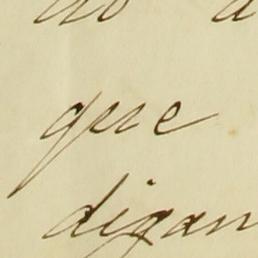 que
digan